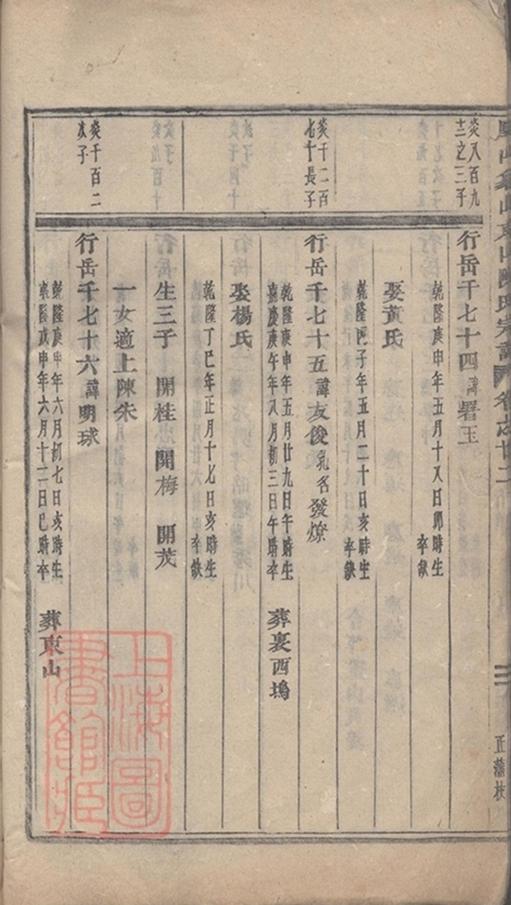 卷之廿二
正蒲枝
炎八百九
十二之三子
行岳千七十四諱署玉
乾隆庚申年五月十八日卯時生
卒缺
娶黃氏
乾隆丙子年五月二十日亥時生
卒缺
炎千二百
七十長子
行岳千七十五諱友後乳名發燎
乾隆庚申年五月廿九日午時生
嘉慶庚午年八月初三日午時卒
葬裏西塢
娶楊氏
乾隆丁巳年正月十七日亥時生
卒缺
生三子 開桂 開梅 開茂
一女適上陳朱
炎千百二
次子
行岳千七十六諱明球
乾隆庚申年六月初七日亥時生
乾隆戊申年六月十二日巳時卒
葬東山
上海圖
書館藏